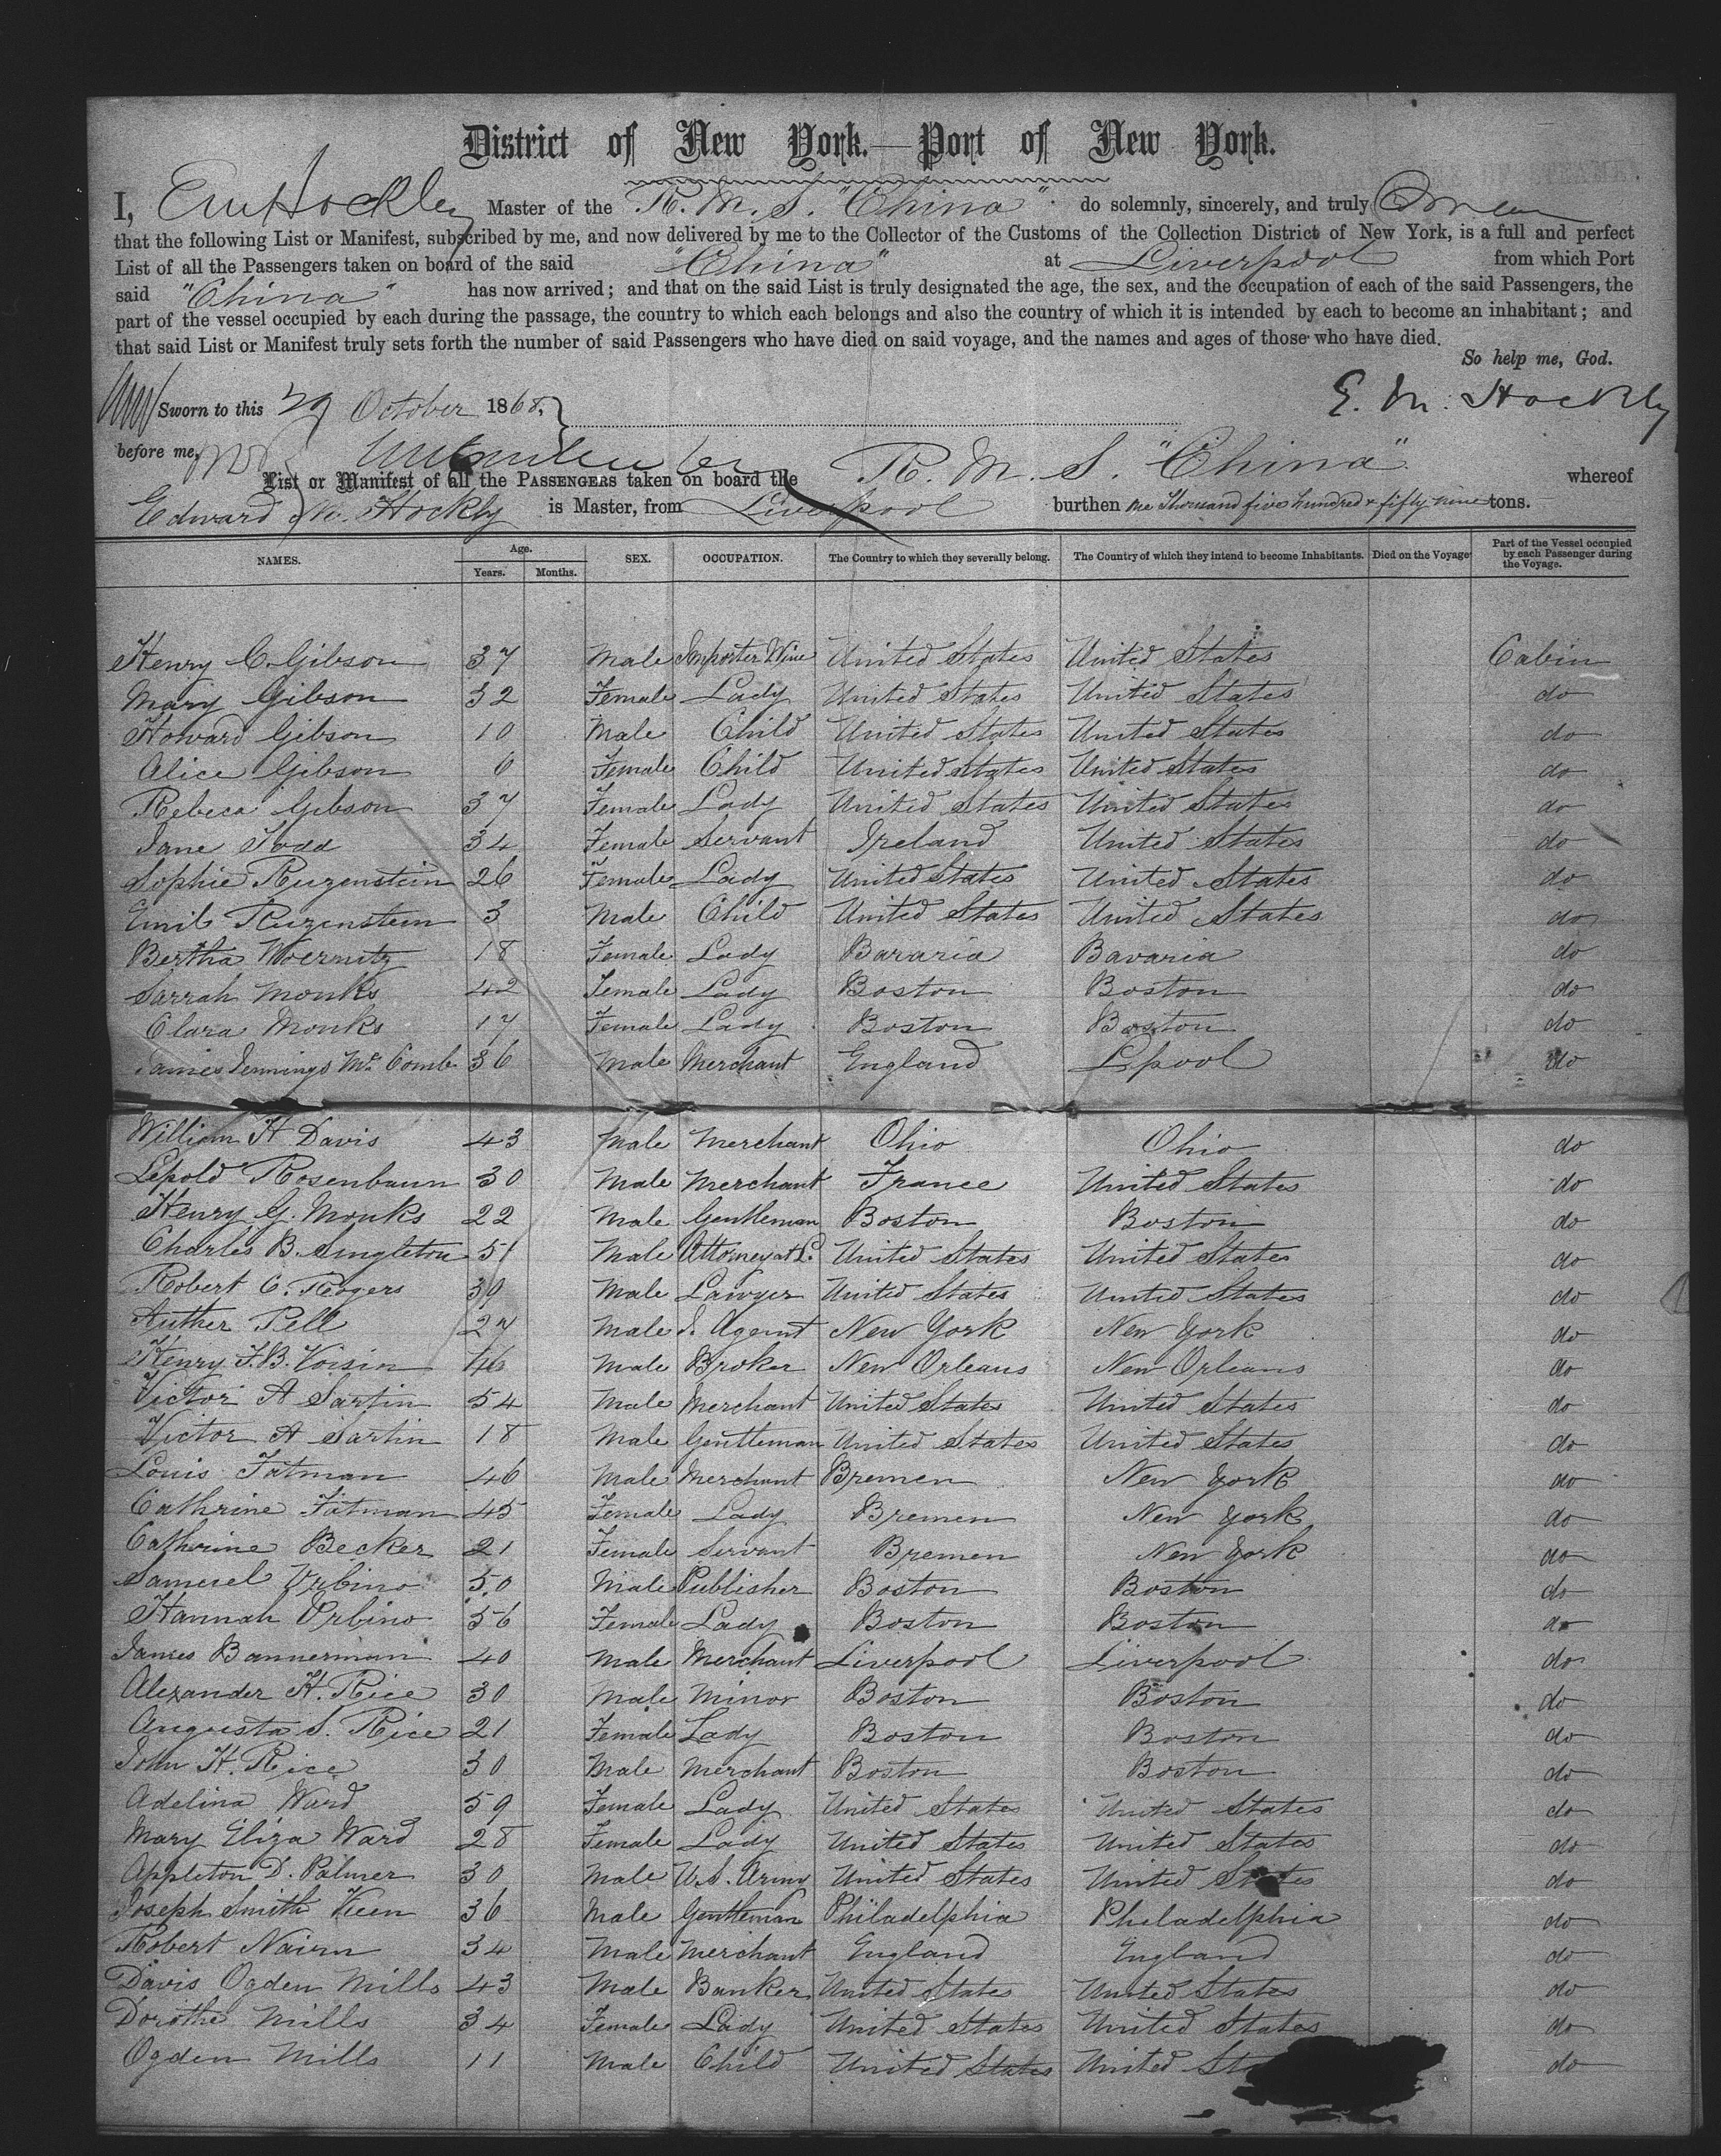 District of New York.—Port of New York.
I, E M Hockley Master of the R. M. S. "China" do solemnly, sincerely, and truly
that the following List or Manifest, subscribed by me, and now delivered by me to the Collector of the Customs of the Collection District of New York, is a full and perfect
List of all the Passengers taken on board of the said "China" at Liverpool from which Port
said "China" has now arrived; and that on the said List is truly designated the age, the sex, and the occupation of each of the said Passengers, the
part of the vessel occupied by each during the passage, the country to which each belongs and also the country of which it is intended by each to become an inhabitant; and
that said List or Manifest truly sets forth the number of said Passengers who have died on said voyage, and the names and ages of those who have died.
So help me, God.
Sworn to this 29 October 1868, E. M. Hockly
before me,
List or Manifest of all the Passengers taken on board the R. M. S. "China" whereof
Edward M. Hockly is Master, from Liverpool burthen one Thousand five hundred & fifty nine tons.
NAMES. Age. Years. Months. SEX. OCCUPATION. The Country to which they severally belong. The Country of which they intend to become Inhabitants. Died on the Voyage Part of the Vessel occupied by each Passenger during the Voyage.
Henry C. Gibson 37 Male Importer Wine United States United States Cabin
Mary Gibson 32 Female Lady United States United States do
Howard Gibson 10 Male Child United States United States do
Alice Gibson 6 Female Child United States United States do
Rebeca Gibson 37 Female Lady United States United States do
Jane Todd 34 Female Servant Ireland United States do
Sophie Ruzenstein 26 Female Lady United States United States do
Emil Ruzenstein 3 Male Child United States United States do
Bertha Woernitz 18 Female Lady Bavaria Bavaria do
Sarrah Monks 42 Female Lady Boston Boston do
Clara Monks 17 Female Lady Boston Boston do
James Jennings Mc Comb 36 Male Merchant England Lpool do
William H Davis 43 Male Merchant Ohio Ohio do
Lepold Rosenbaum 30 Male Merchant France United States do
Henry G. Monks 22 Male Gentleman Boston Boston do
Charles B. Singleton 51 Male Attorney at L. United States United States do
Robert C. Rogers 39 Male Lawyer United States United States do
Auther Pell 27 Male I. Agemt New York New York do
Henry F. B. Voisin Male Broker New Orleans New Orleans do
Victor A Sartin 54 Male Merchant United States United States do
Victor A Sartin 18 Male Gentleman United States United States do
Louis Fatman 46 Male Merchant Bremen New York do
Cathrine Fatman 45 Female Lady Bremen New York do
Catherine Becker 21 Female Servant Bremen New York do
Samuel Urbino 50 Male Publisher Boston Boston do
Hannah Urbino 56 Female Lady Boston Boston do
James Bannerman 40 Male Merchant Liverpool Liverpool do
Alexander H. Rice 30 Male Minor Boston Boston do
Augusta S. Rice 21 Female Lady Boston Boston do
John H. Rice 30 Male Merchant Boston Boston do
Adelina Ward 59 Female Lady United States United States do
Mary Eliza Ward 28 Female Lady United States United States do
Appleton D. Palmer 30 Male U.S. Army United States United States do
Joseph Smith Keen 36 Male Gentleman Philadelphia Philadelphia do
Robert Nairn 34 Male Merchant England England do
Davis Ogden Mills 43 Male Banker United States United States do
Dorothe Mills 34 Female Lady United States United States do
Ogden Mills 11 Male Child United States United Sta do